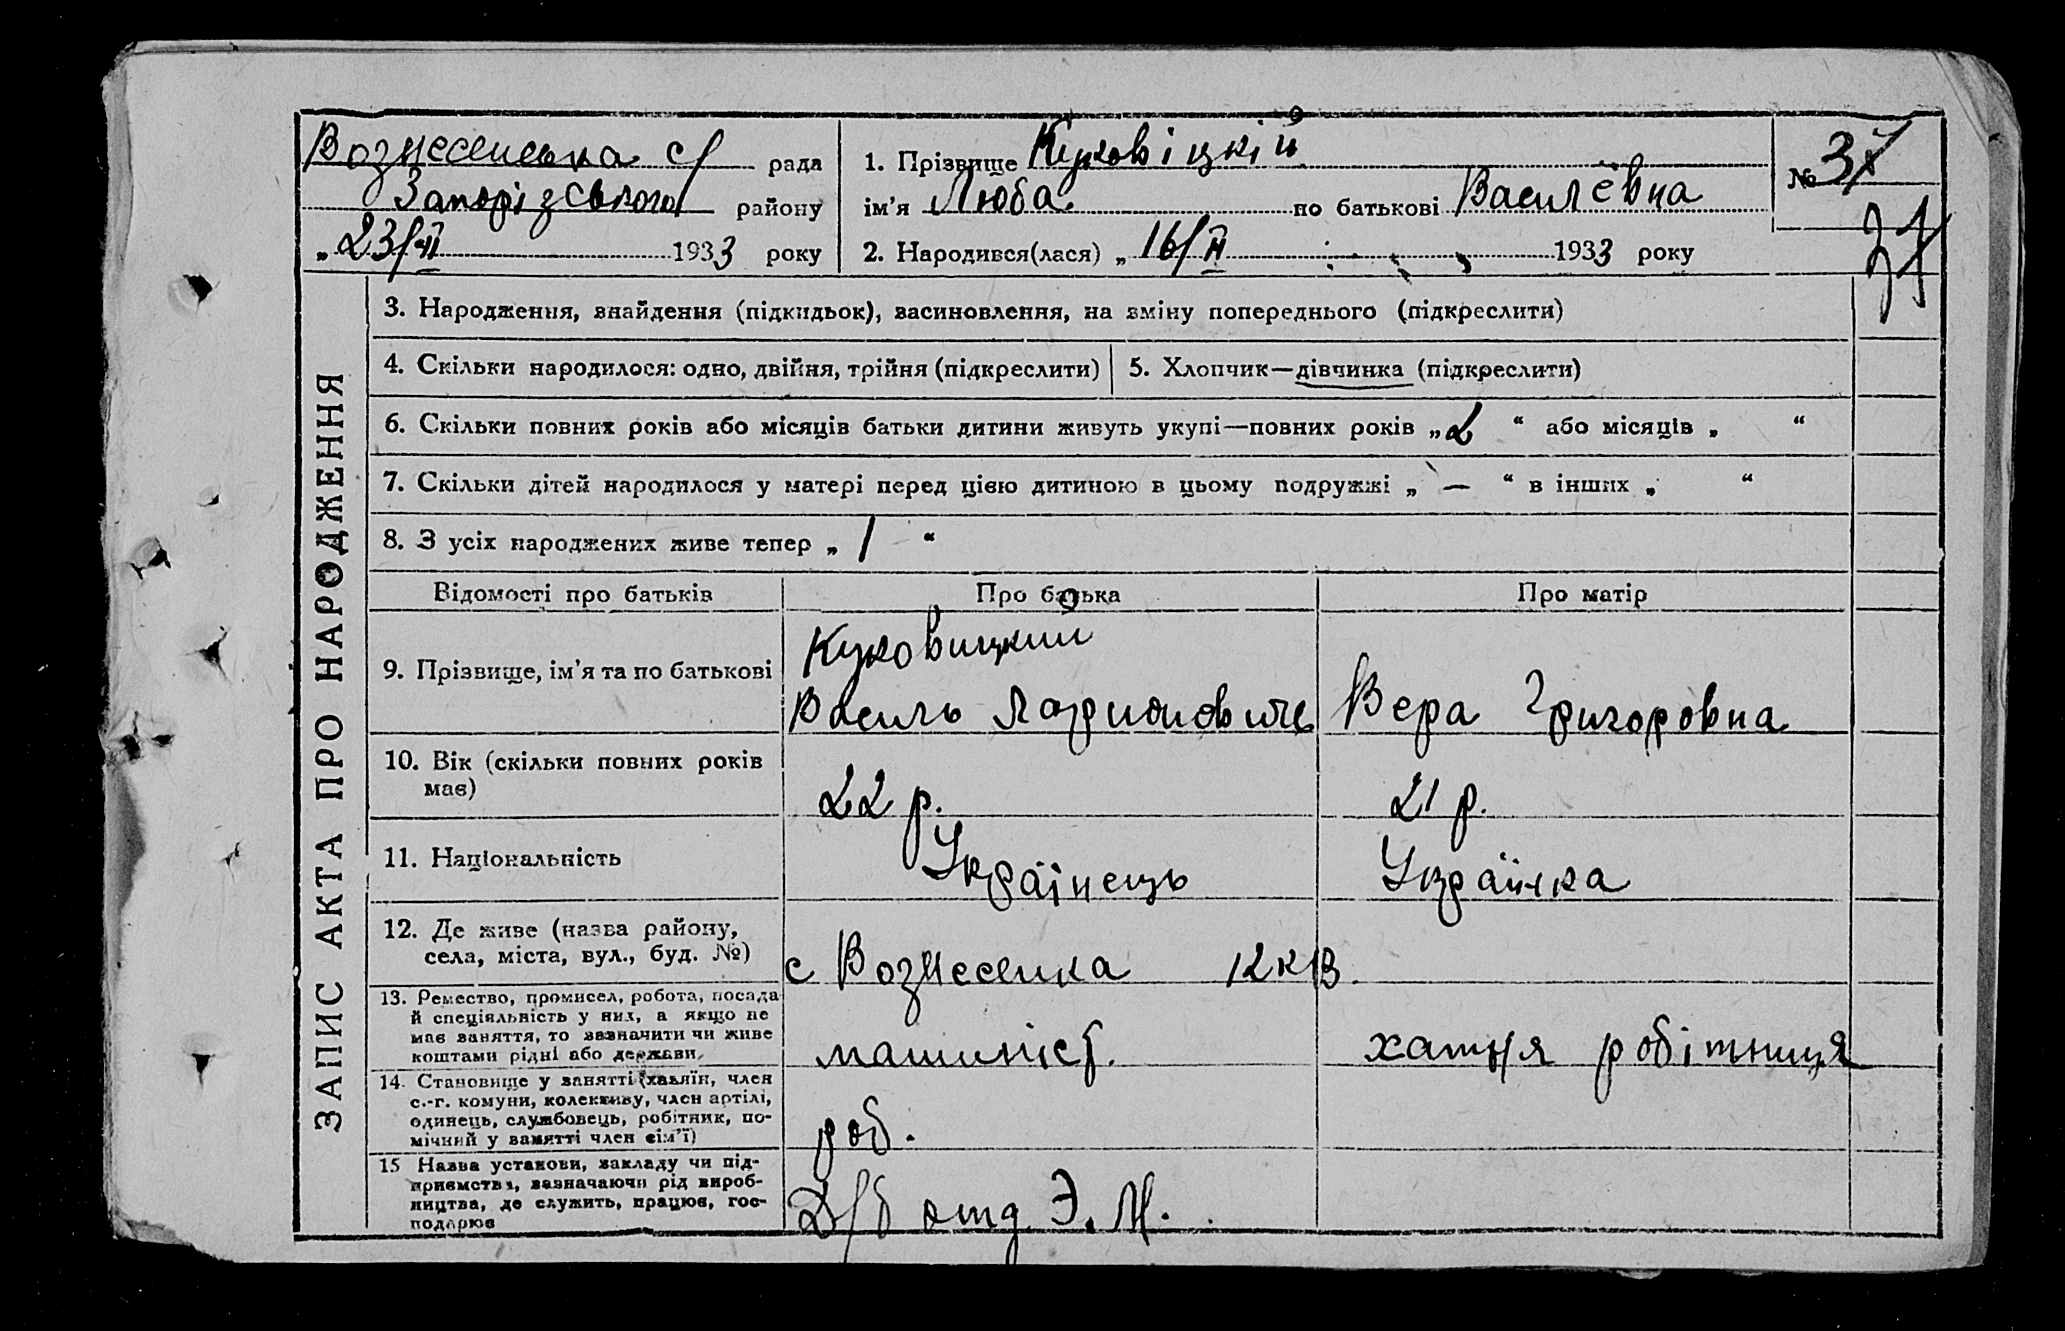 Вознесенська с/ рада
Запорізського району
„23/II 1933 року
1. Прізвище Куковіцкій
ім’я Люба по батькові Василёвна
2. Народився(лася) „16/II 1933 року
№ 37
37
ЗАПИС АКТА ПРО НАРОДЖЕННЯ
3. Народження, знайдення (підкидьок), васиновлення, на зміну попереднього (підкреслити)
4. Скільки народилося: одно, двійня, трійня (підкреслити)
5. Хлопчик—дівчинка (підкреслити)
6. Скільки повних років або місяців батьки дитини живуть укупі—повних років „2“ або місяців „ “
7. Скільки дітей народилося у матері перед цією дитиною в цьому подружжі „—“ в інших „ “
8. З усіх народжених живе тепер „1“
Відомості про батьків Про батька Про матір
9. Прізвище, ім’я та по батькові
Куковицкий
Василь Ларионович
Вера Григоровна
10. Вік (скільки повних років
має)
22 р.
21 р.
11. Національність
Українець
Українка
12. Де живе (назва району,
села, міста, вул., буд. №)
с Вознесенка 12 кв.
13. Ремество, промисел, робота, посада
й спеціяльність у них, а якщо не
має заняття, то зазначити чи живе
коштами рідні або держави
машиніст.
хатня робітниця
14. Становище у занятті (хазяїн, член
с.-г. комуни, колективу, член артілі,
одинець, службовець, робітник, по-
мічний у занятті член сім’ї)
роб.
15 Назва установи, закладу чи під-
приємства, зазначаючи рід вироб-
ництва, де служить, працює, гос-
подарює
Д/б отд Э. М.